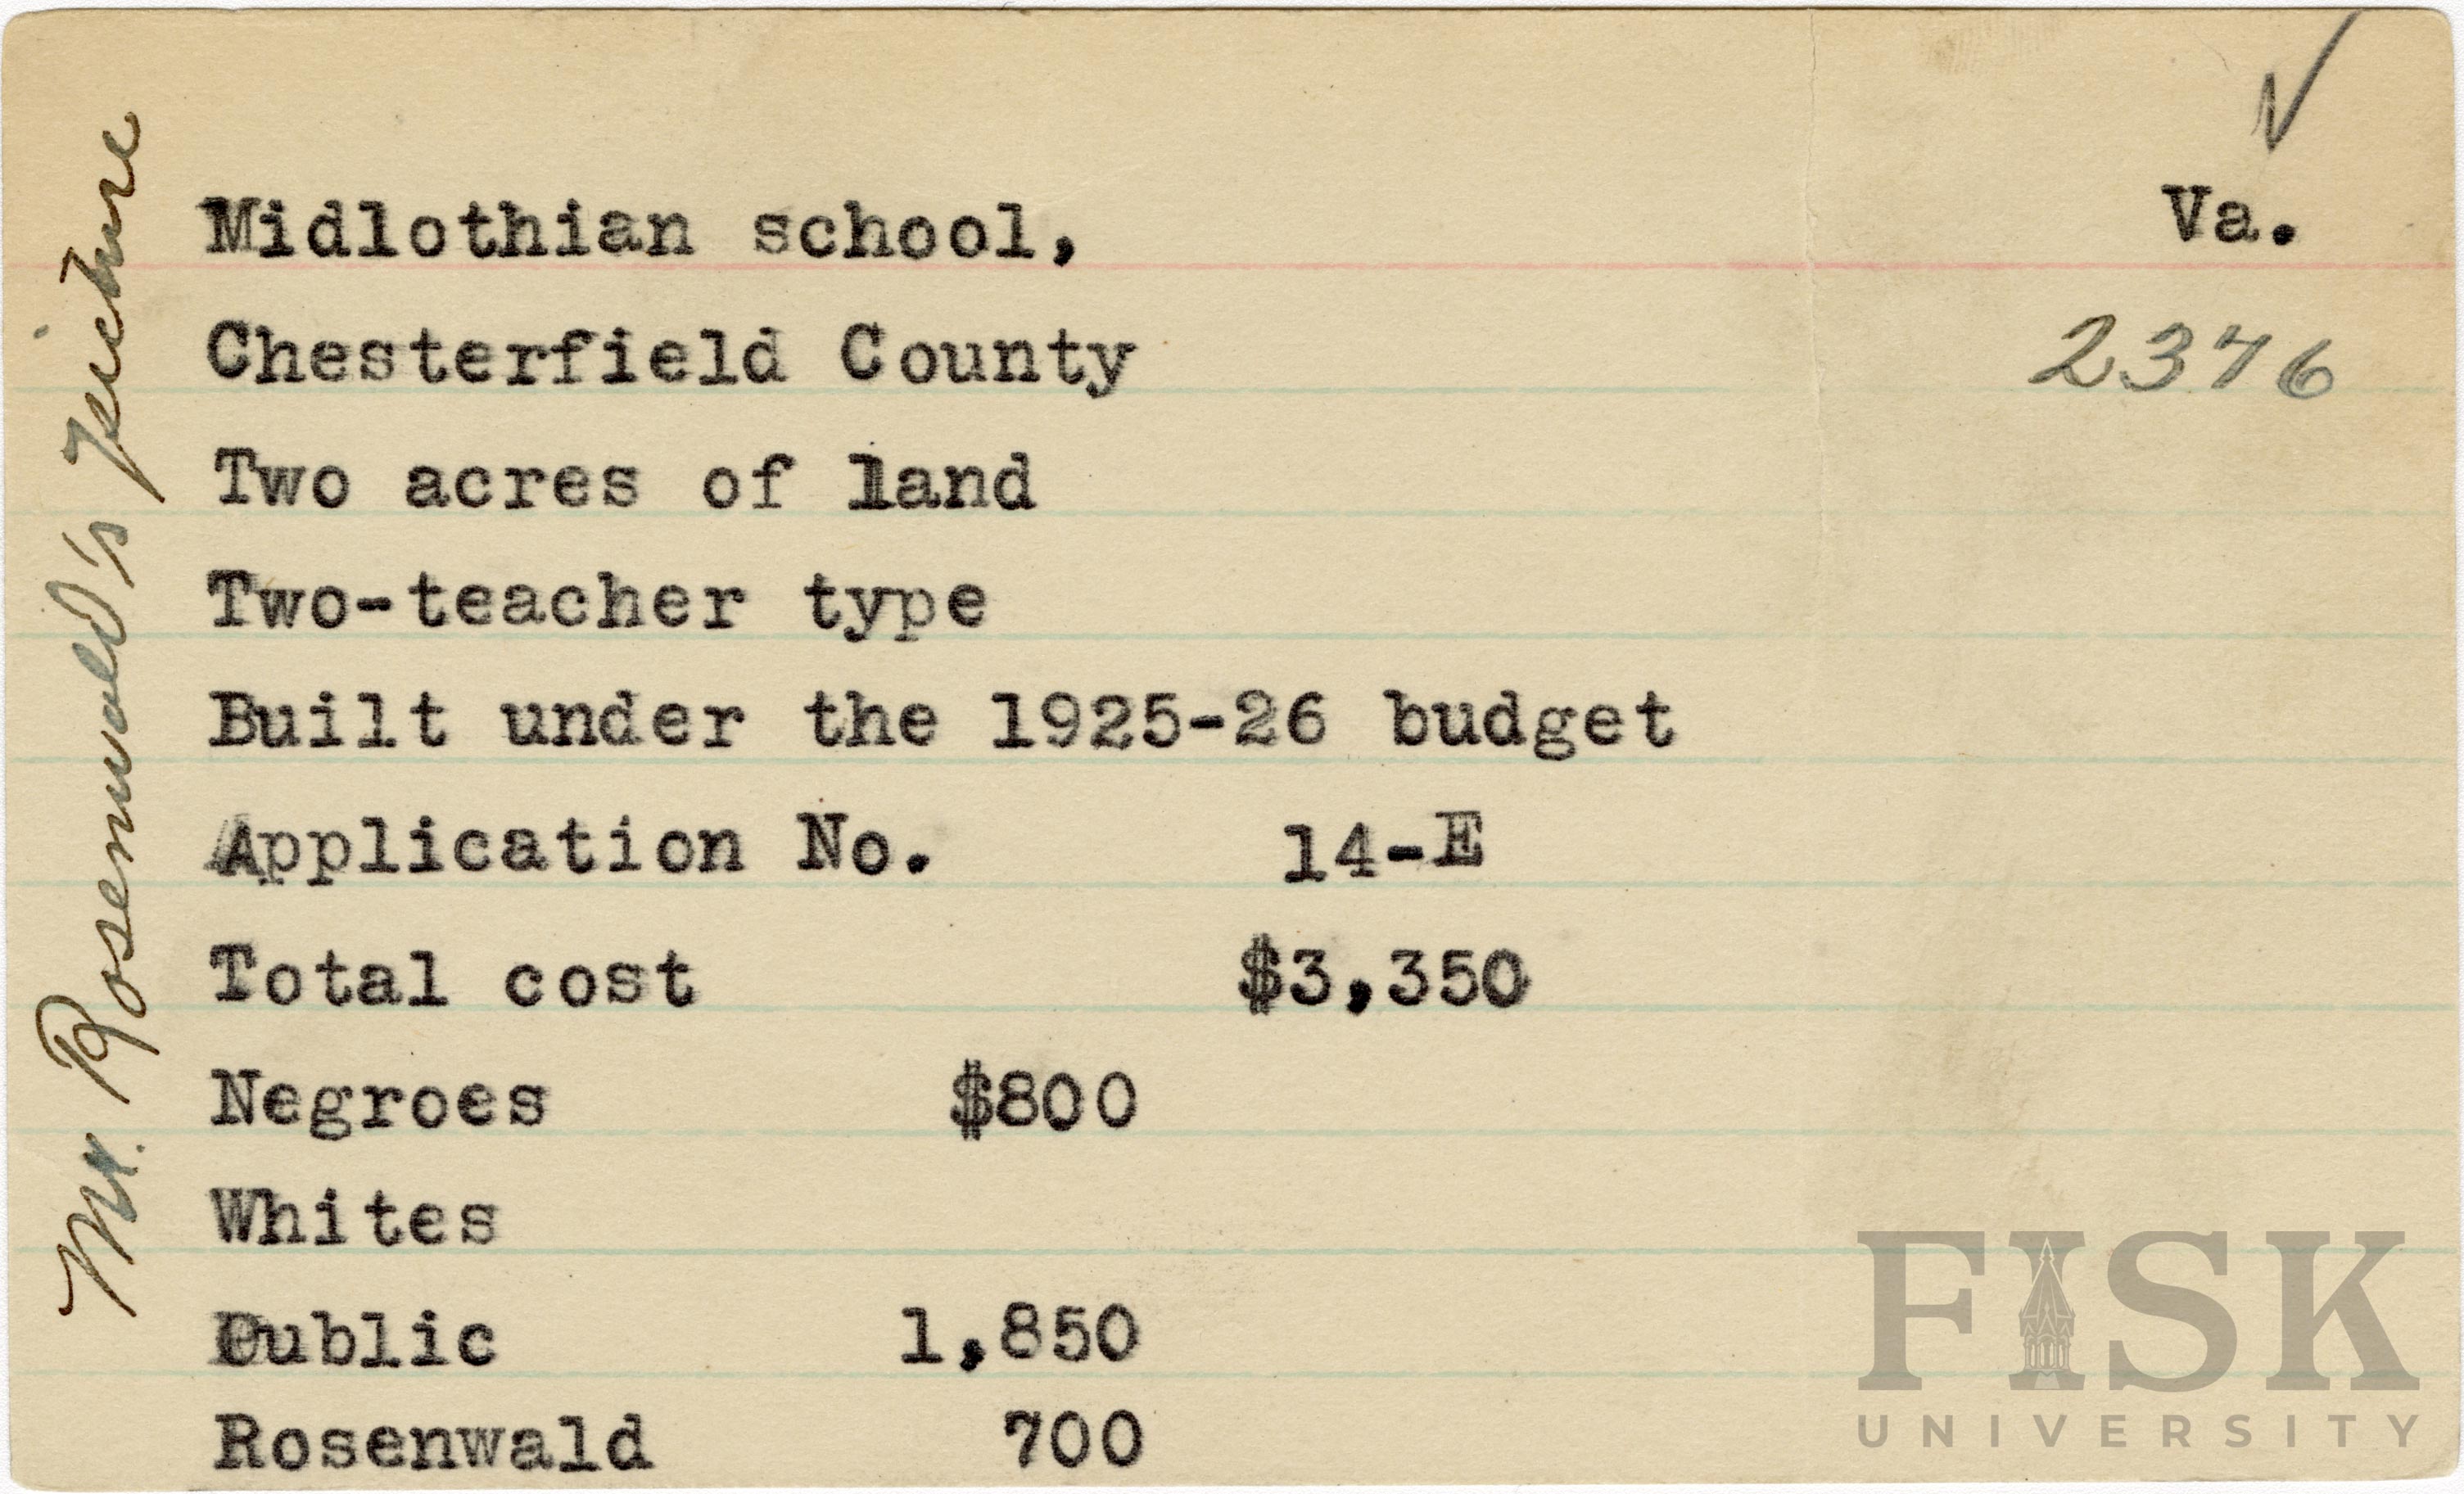 Midlothian school,
Va.
Chesterfield County
2376
Two acres of land
Two-teacher type
Built under the 1925-26 budget
Application No. 14-E
Total cost $3,350
Negroes $800
Whites
Public 1,850
Rosenwald 700
Mr. Rosenwald's picture
FISK
UNIVERSITY